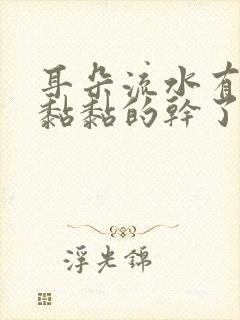 耳朵流水有
黏黏的幹了
浮光錦